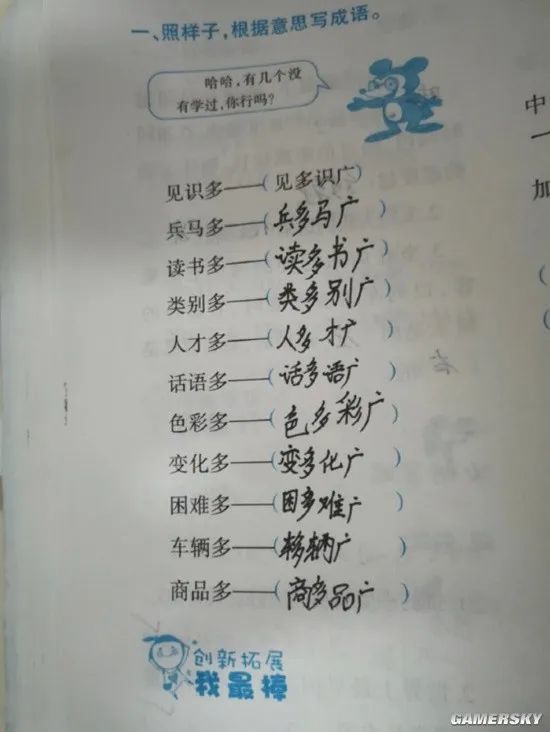 一、照样子，根据意思写成语。
哈哈，有几个没
有学过，你行吗？
见识多——（见多识广）
兵马多——（兵多马广）
读书多——（读多书广）
类别多——（类多别广）
人才多——（人多才广）
话语多——（话多语广）
色彩多——（色多彩广）
变化多——（变多化广）
困难多——（困多难广）
车辆多——（ 辆广）
商品多——（商多品广）
创新拓展
我最棒
中
一
加
GAMERSKY